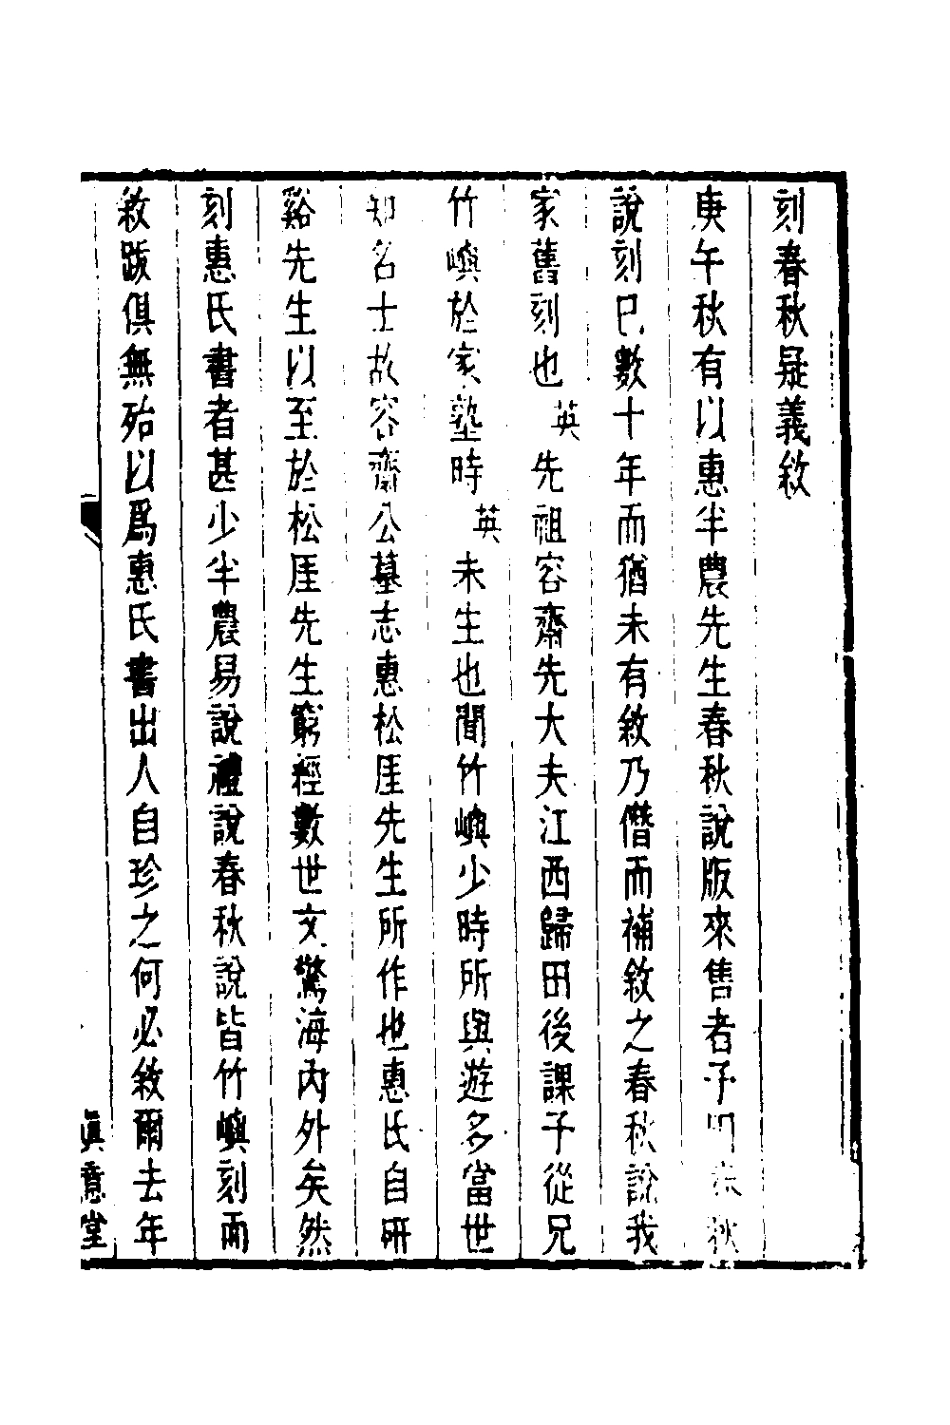 刻春秋疑義敘
庚午秋有以惠半農先生春秋說版來售者予秋
說刻已數十年而猶未有敘乃僭而補敘之春秋說我
家舊刻也英先祖容齋先大夫江西歸田後課子從兄
竹嶼於家塾時英未生也聞竹嶼少時所與遊多當世
知名士故容齋公墓志惠松厓先生所作也惠氏自硏
谿先生以至於松厓先生窮經數世文驚海內外矣然
刻惠氏書者甚少半農易說禮說春秋說皆竹嶼刻而
敘跋俱無殆以爲惠氏書出人自珍之何必敘爾去年
眞意堂